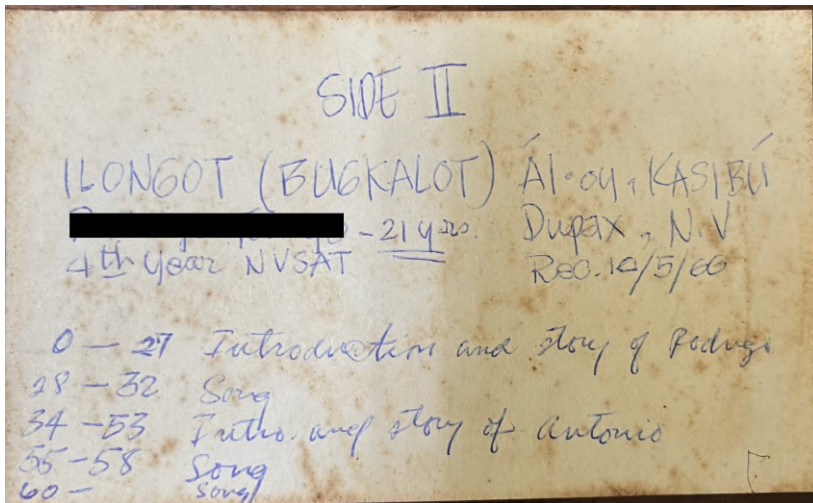 SIDE II
ILONGOT (BUGKALOT) Ál·oy, KASIBÚ
- 21 yrs. Dupax, N.V
4th year NVSAT Rec. 10/5/66
0 - 27 Introduction and story of Rodrigo
28 - 32 Song
34 - 53 Intro. and story of Antonio
55 - 58 Song
60 - Song